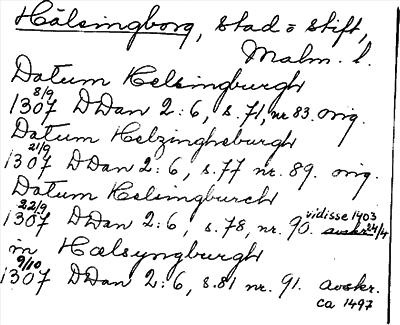 Hälsingborg, stad o stift,
Malm. l.
Datum Helsingburgh
8/9
1307 DDan 2:6, s. 71, nr. 83. orig.
Datum Helzingheburgh
21/9
1307 DDan 2:6, s. 77 nr. 89. orig.
Datum Helsingburch
22/9 vidisse 1403
1307 DDan 2:6, s. 78, nr. 90. avskr. 24/4
in Hælsyngburgh
9/10
1307 DDan 2:6, s. 81 nr. 91. avskr.
ca 1497